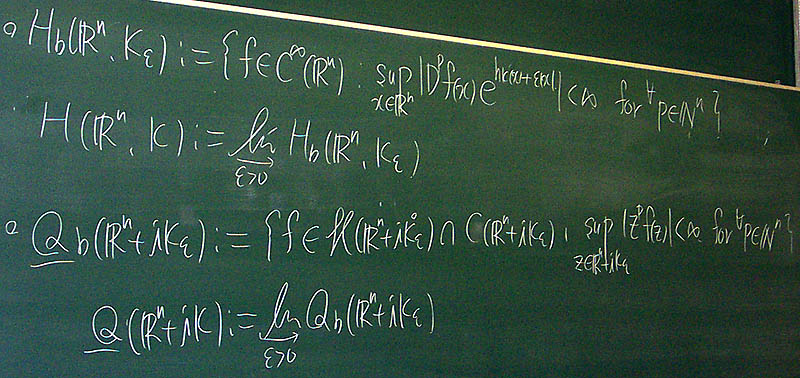 ○ H_b(ℝⁿ, K_ε) := {f∈C^∞(ℝⁿ) : sup_{x∈ℝⁿ} |D^p f(x) e^{h_K(x)+ε|x|}| < ∞ for ∀p∈ℕⁿ}
H(ℝⁿ, K) := lim_{→ ε>0} H_b(ℝⁿ, K_ε)
○ Q_b(ℝⁿ+iK_ε) := {f∈ℋ(ℝⁿ+iK_ε°) ∩ C(ℝⁿ+iK_ε) ; sup_{z∈ℝⁿ+iK_ε} |z^p f(z)| < ∞ for ∀p∈ℕⁿ}
Q(ℝⁿ+iK) := lim_{→ ε>0} Q_b(ℝⁿ+iK_ε)